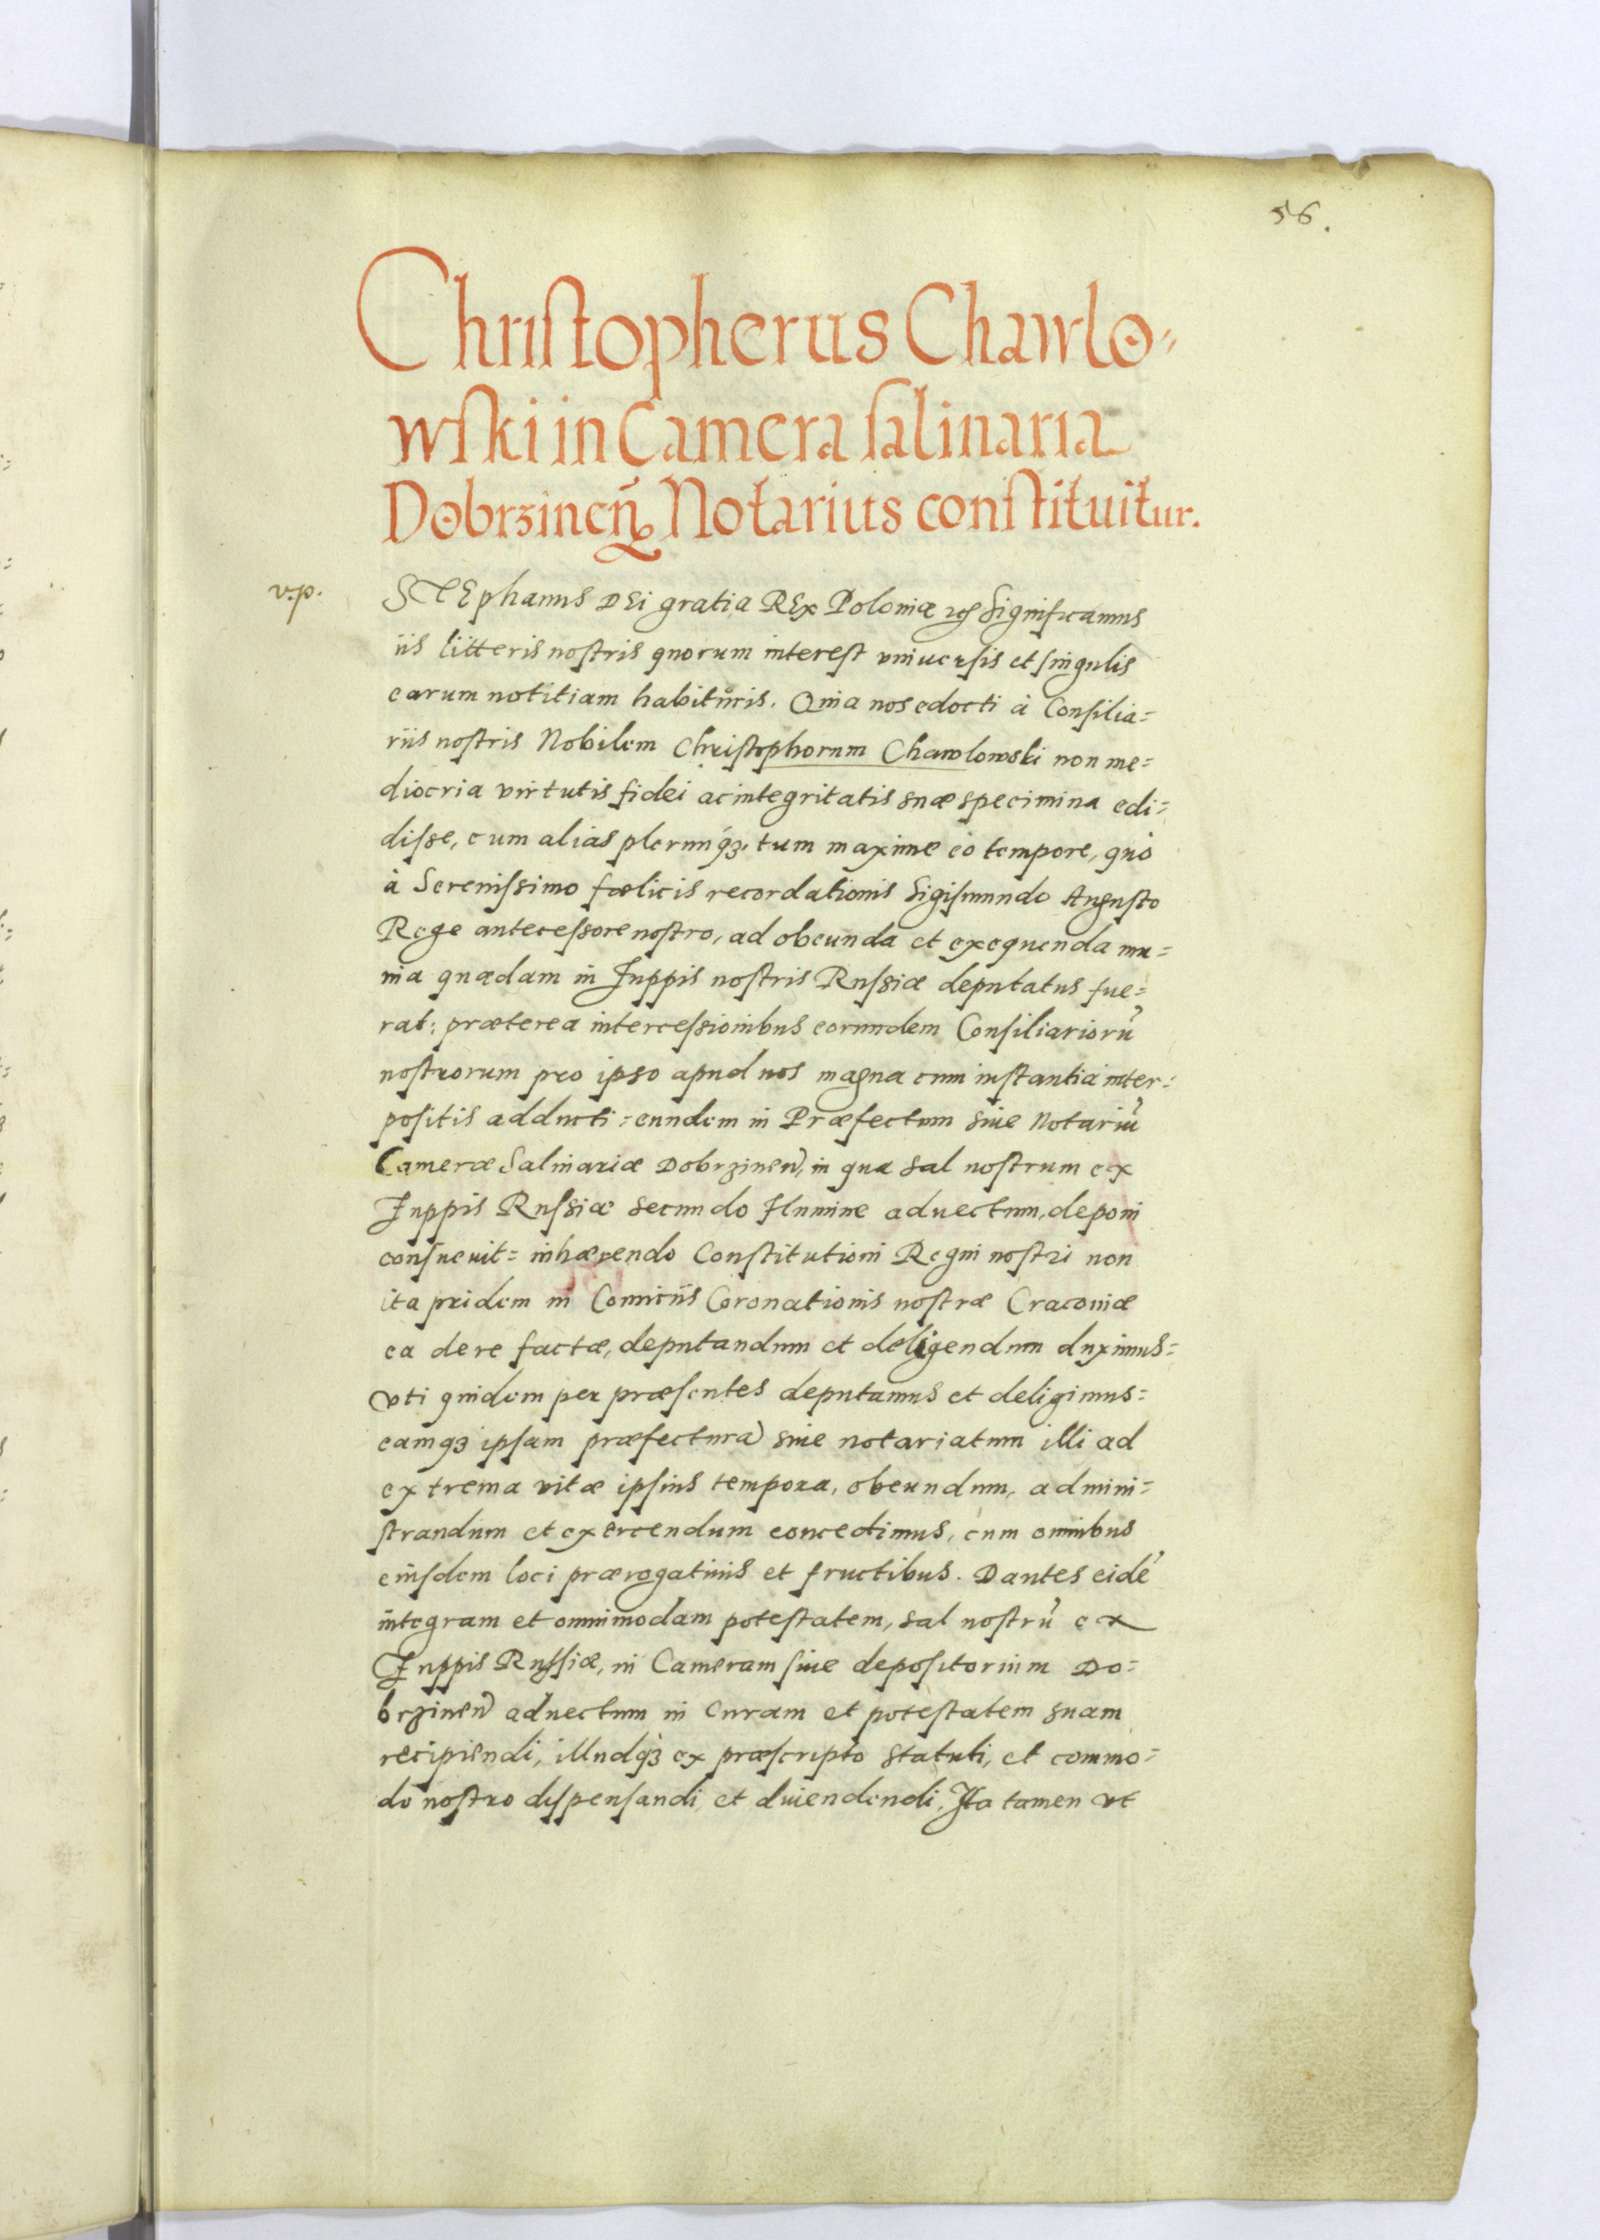 56.
Christopherus Chawlo-
wski in Camera salinaria
Dobrzinen Notarius constituitur.
v.p.
STEphanus DEi gratia REx Poloniæ etc Significamus
iis litteris nostris quorum interest vniuersis et singulis
earum notitiam habituris. Quia nos edocti à Consilia=
riis nostris Nobilem Christophorum Chawlowski non me=
diocria virtutis fidei ac integritatis suæ specimina edi=
disse, cum alias plerunq3, tum maxime eo tempore, quo
à Serenissimo fœlicis recordationis Sigismundo Augusto
Rege antecessore nostro, ad obeunda et exequenda mu=
nia quædam in Juppis nostris Russiæ deputatus fue=
rat: præterea intercessionibus eorundem Consiliariorũ
nostrorum pro ipso apud nos magna cum instantia inter=
positis adducti: eundem in Præfectum siue Notariũ
Cameræ Salinariæ Dobrzinen, in qua sal nostrum ex
Juppis Russiæ secundo flumine aduectum, deponi
consueuit= inhærendo Constitutioni Regni nostri non
ita pridem in Comiciis Coronationis nostræ Cracouiæ
ea de re factæ, deputandum et deligendum duximus=
vti quidem per præsentes deputamus et deligimus=
eamq3 ipsam præfecturã siue notariatum illi ad
extrema vitæ ipsius tempora, obeundum, admini=
strandum et exercendum concedimus, cum omnibus
eiusdem loci prærogatiuis et fructibus. Dantes eidẽ
integram et omnimodam potestatem, sal nostrũ ex
Juppis Russiæ, in Cameram siue depositorium Do=
brzinen aduectum in curam et potestatem suam
recipiendi, illudq3 ex præscripto statuti, et commo=
do nostro dispensandi et diuendendi, Ita tamen vt